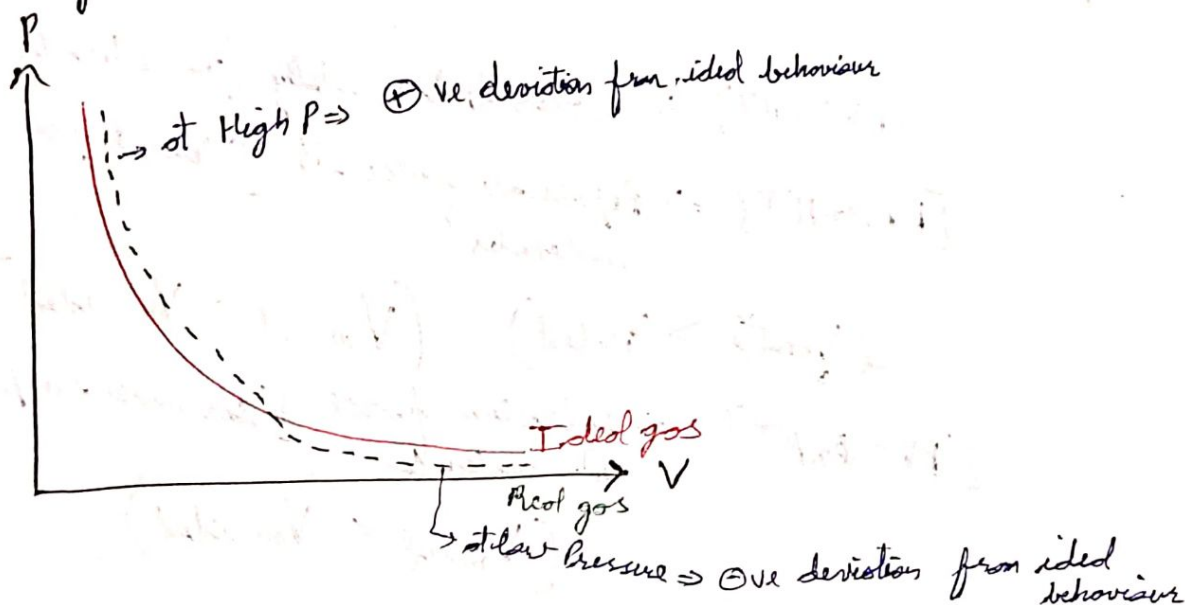 P
at High P ⇒ ⊕ ve deviation from ideal behaviour
Ideal gas
V
Real gas
at low Pressure ⇒ ⊖ve deviation from ideal
behaviour